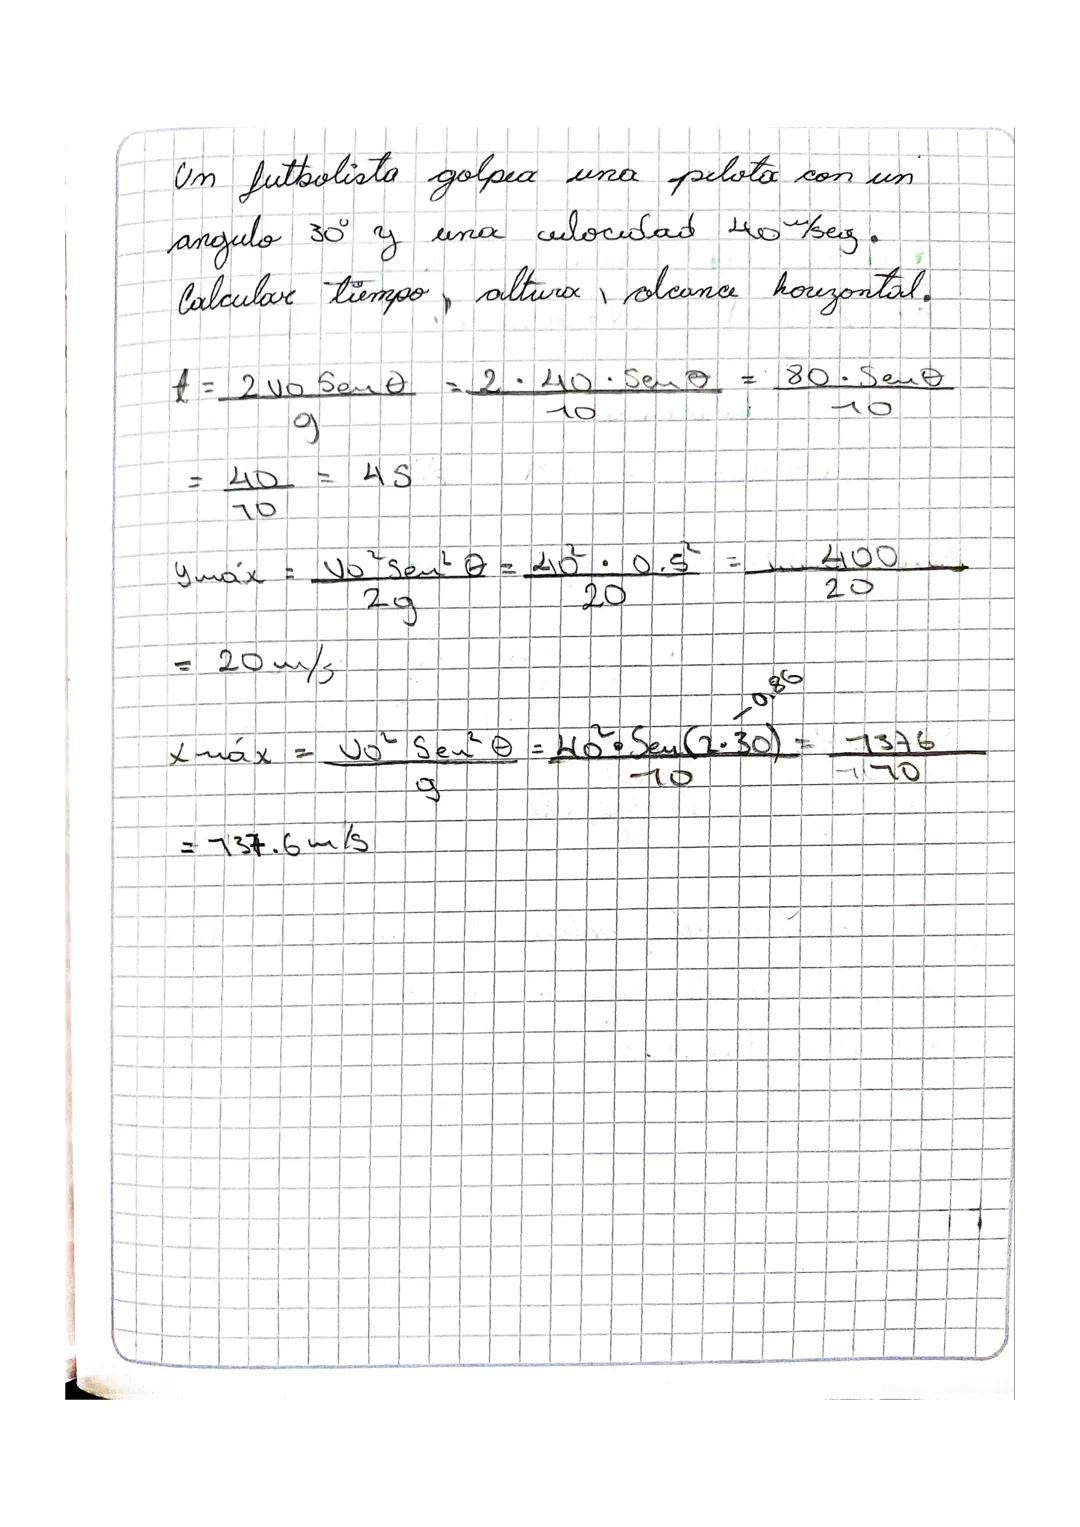 Un futbolista golpea una pelota con un
angulo 30° y una velocidad 40 m/seg.
Calcular tiempo, altura, alcance horizontal.
t = 2 Vo Sen θ / g = 2 · 40 · Sen θ / 10 = 80 · Sen θ / 10
= 40 / 10 = 4 S
y máx = Vo² Sen² θ / 2g = 40² · 0.5² / 20 = 400 / 20
= 20 m/s
0.86
x máx = Vo² Sen² θ / g = 40² · Sen (2·30) / 10 = 1376 / 10
= 137.6 m/s